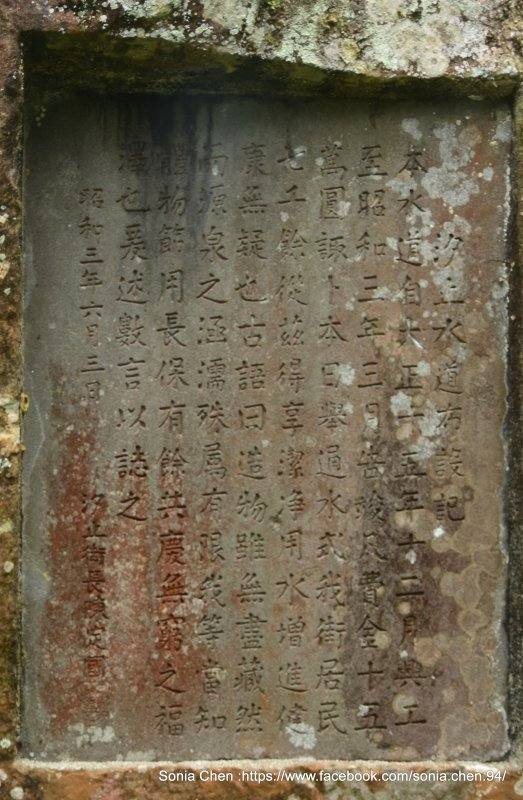 汐止水道布設記
本水道自大正十五年十二月興工
至昭和三年三月告竣凡費金十五
萬圓諏卜本日舉通水式我街居民
七千餘從茲得享潔淨用水增進健
康無疑也古語曰造物雖無盡藏然
而源泉之涵濡殊属有限我等當知
體物節用長保有餘共慶無窮之福
澤也爰述數言以誌之
昭和三年六月三日 汐止街長陳定國
Sonia Chen :https://www.facebook.com/sonia.chen.94/